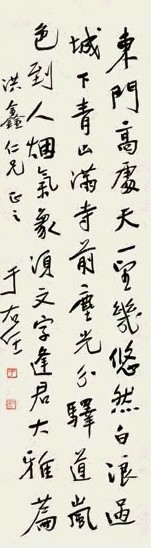 東門高處天一望幾悠然白浪過
城下青山滿寺前塵光分驛道嵐
色到人烟氣象須文字逢君大雅篇
洪鑫仁兄正之
于右任